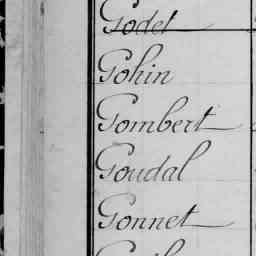 Godet
Gohin
Gombert
Goudal
Gonnet